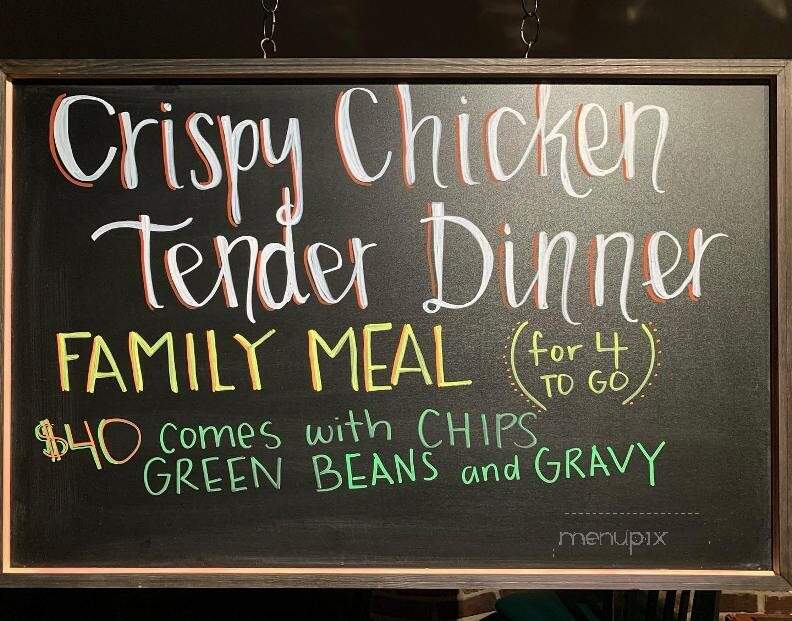 Crispy Chicken
Tender Dinner
FAMILY MEAL (for 4
TO GO)
$40 comes with CHIPS
GREEN BEANS and GRAVY
menupix